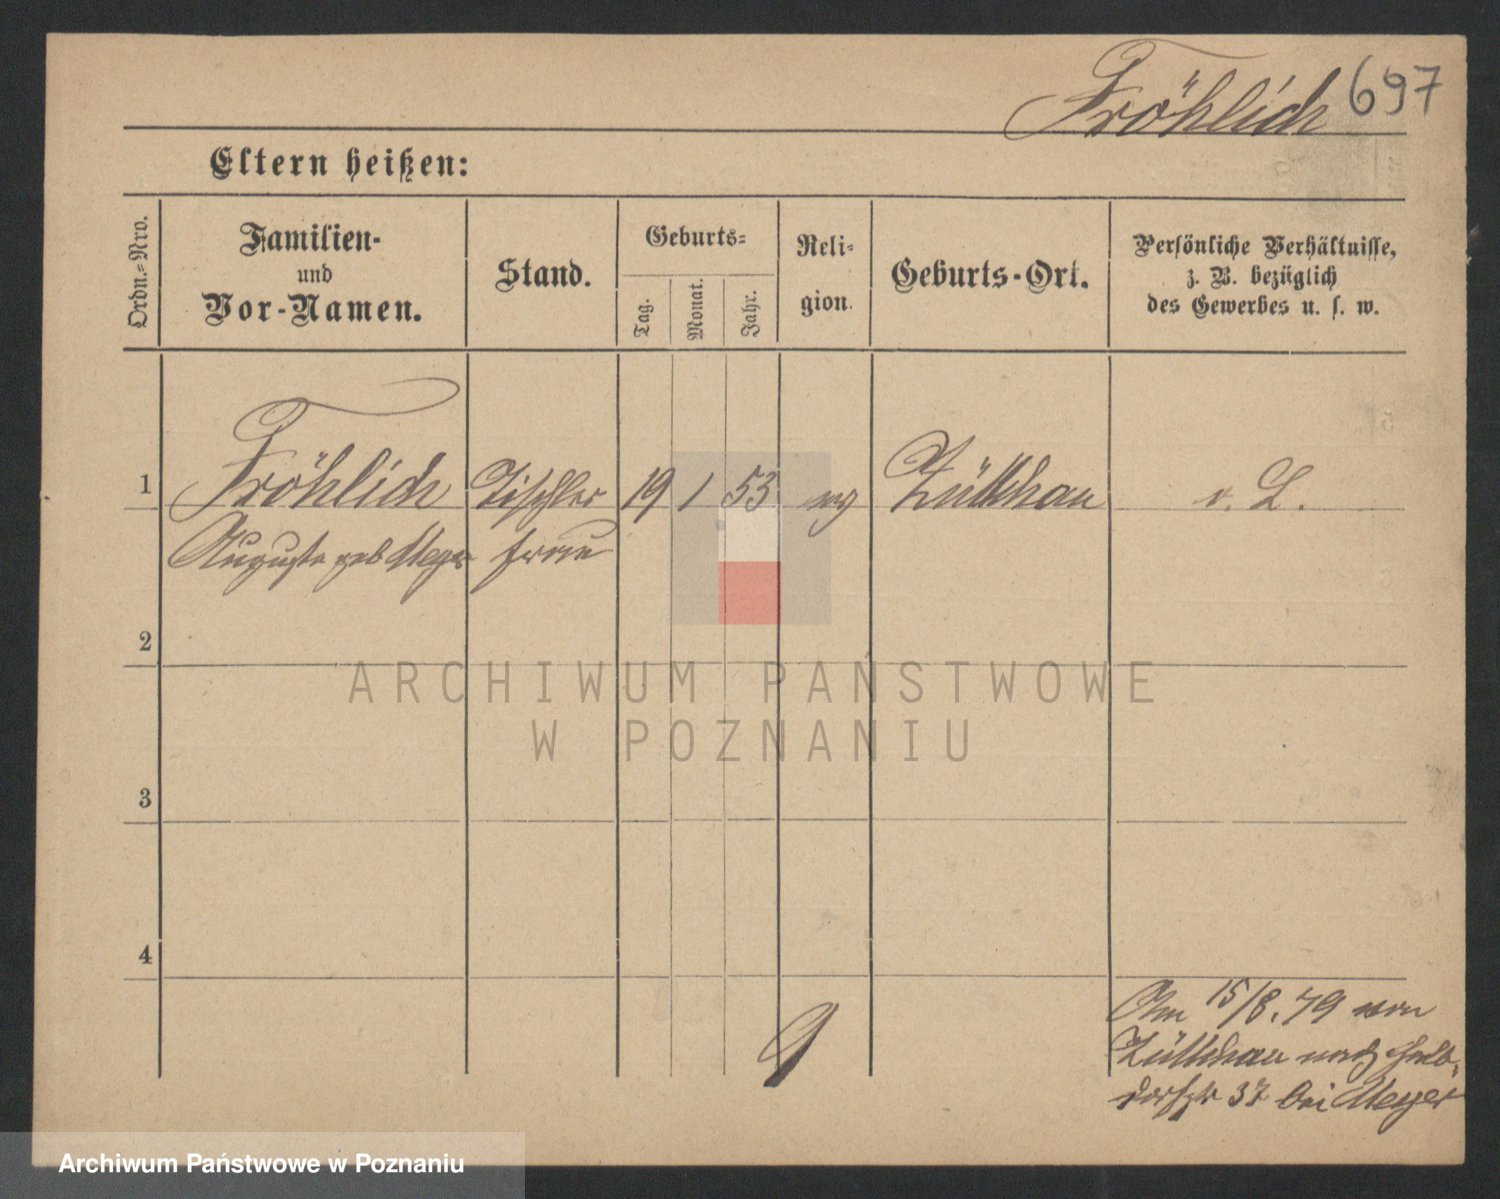 Fröhlich 697
Eltern heißen:
Ordn.=Nro.
Familien-
und
Vor-Namen.
Stand.
Geburts=
Tag.
Monat.
Jahr.
Reli-
gion.
Geburts-Ort.
Persönliche Verhältnisse,
z. B. bezüglich
des Gewerbes u. s. w.
1 Fröhlich Tischler 19 1 53 ev Züllchau v. L.
Auguste geb Meyer frau
2
3
4
Am 15/8. 79 von
Züllchau nach Halb-
dorfstr 37 bei Meyer
ARCHIWUM PAŃSTWOWE
W POZNANIU
Archiwum Państwowe w Poznaniu